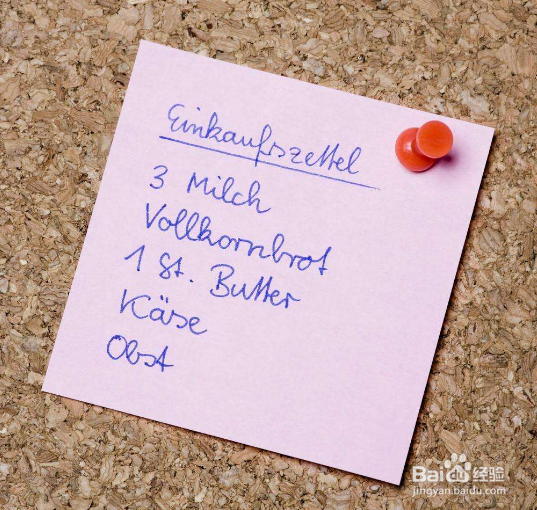 Einkaufszettel
3 Milch
Vollkornbrot
1 St. Butter
Käse
Obst
Baidu 经验
jingyan.baidu.com